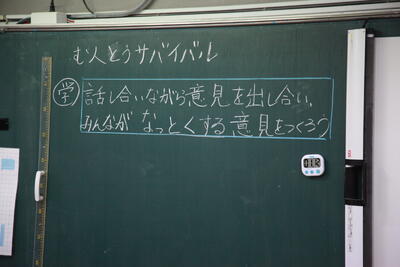 む人とうサバイバル
学 話し合いながら意見を出し合い、
みんなが なっとくする意見をつくろう